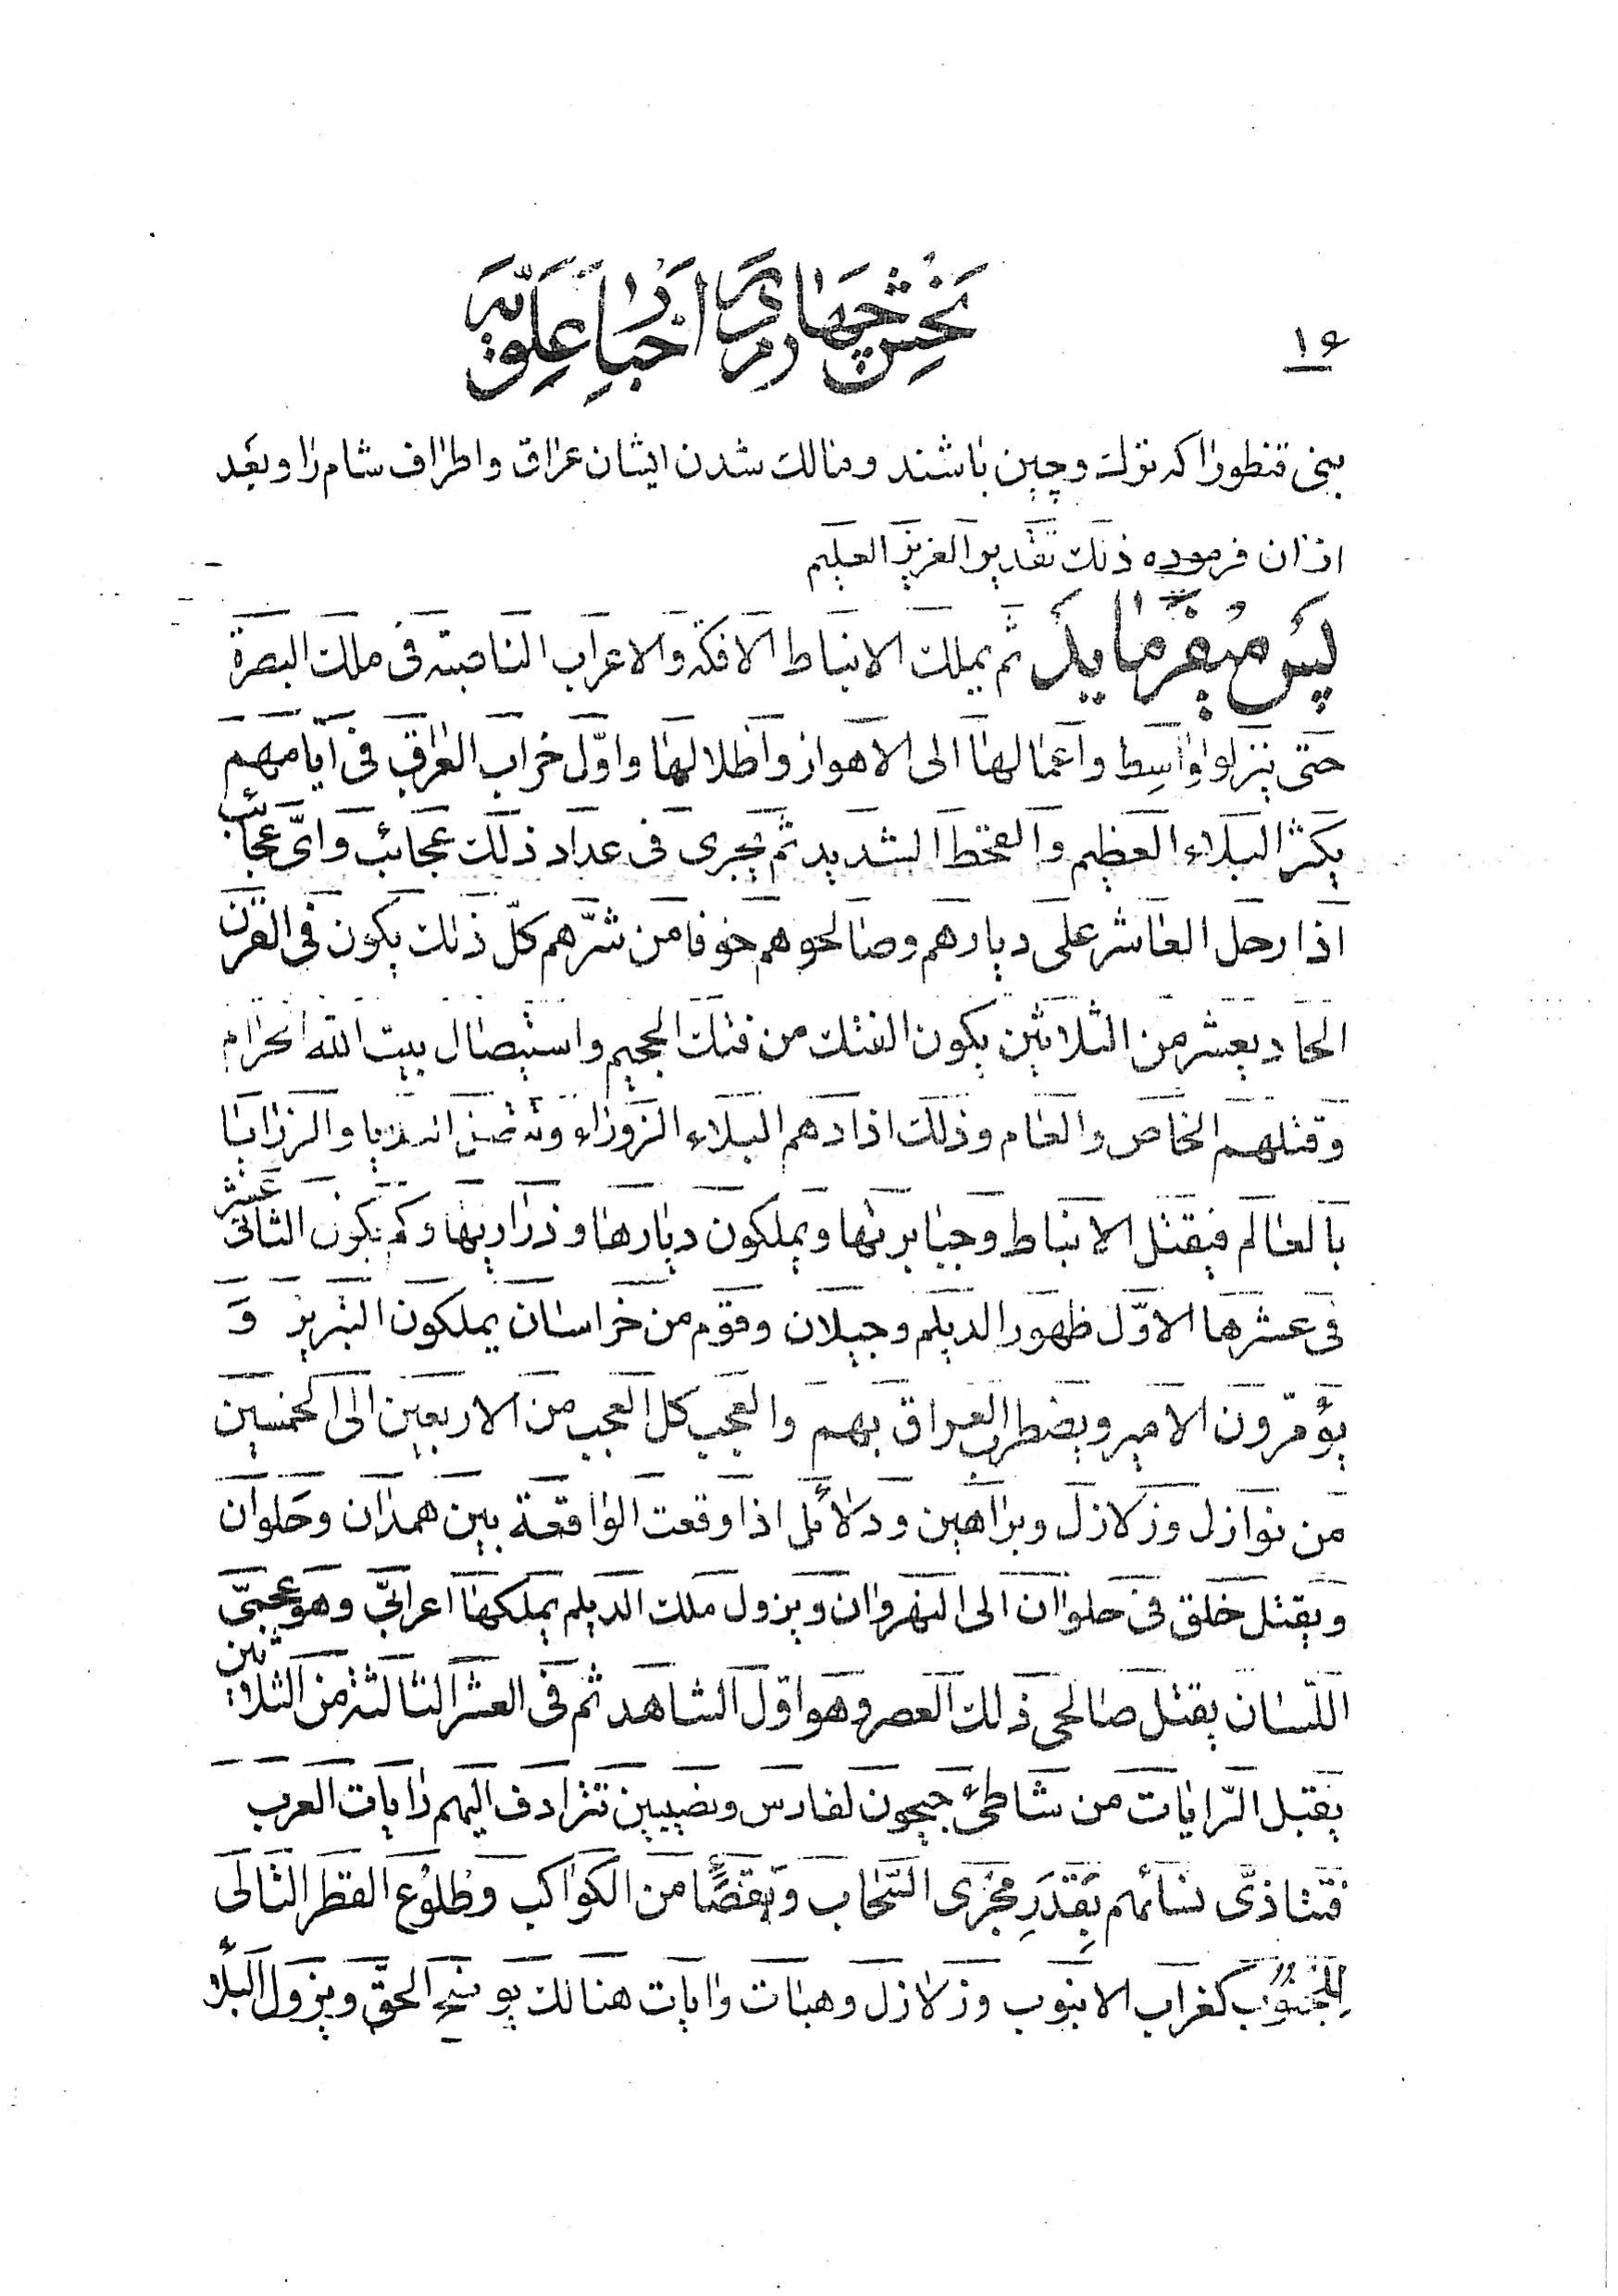 ۱۶
بخش چهارم در اخبار علویه
بنی قنطورا که ترک و چین باشند و مالک شدن ایشان عراق و اطراف شام را و بعد
از ان فرموده ذلک تقدیر العزیز العلیم
پس میفرماید ثم یملک الانباط الافکة والاعراب الناصبة فی ملک البصرة
حتی ینزلوا واسط واعمالها الی الاهواز واظلالها واوّل خراب العراق فی ایامهم
یکثر البلاء العظیم والقحط الشدید ثم یجری فی عداد ذلک عجائب وایّ عجائب
اذا رحل العاشر علی دیارهم وصالحوهم خوفا من شرّهم کلّ ذلک یکون فی القرن
الحادیعشر من الثلاثین یکون الفتک من فتک الجحیم واستیصال بیت الله الحرام
وقتلهم الخاص والعام وذلک اذا دهم البلاء الزوراء والرزایا
بالعالم فیقتل الانباط وجبابرتها ویملکون دیارها وذراریها وکم یکون الثانی عشر
فی عشرها الاوّل ظهور الدیلم وجیلان وقوم من خراسان یملکون التبریز وَ
یؤمّرون الامیر ویضطرب العراق بهم والعجب کل العجب من الاربعین الی الخمسین
من نوازل وزلازل وبراهین ودلائل اذا وقعت الواقعة بین همدان وحلوان
ویقتل خلق فی حلوان الی النهروان ویزول ملک الدیلم یملکها اعرابیّ وهو عجمیّ
اللسان یقتل صالحی ذلک العصر وهو اوّل الشاهد ثم فی العشر الثالثة من الثلاثین
یقبل الرّایات من شاطئ جیحون لفارس ونصیبین تترادف الیهم رایات العرب
بِقَدَرِ مجْرَی السّحاب ونقصًا من الکواکب وطلوع القطر التالی
للجنوب کغراب الابنوب وزلازل وهبات وایات هنالک یوضح الحقّ ویزول البلأ